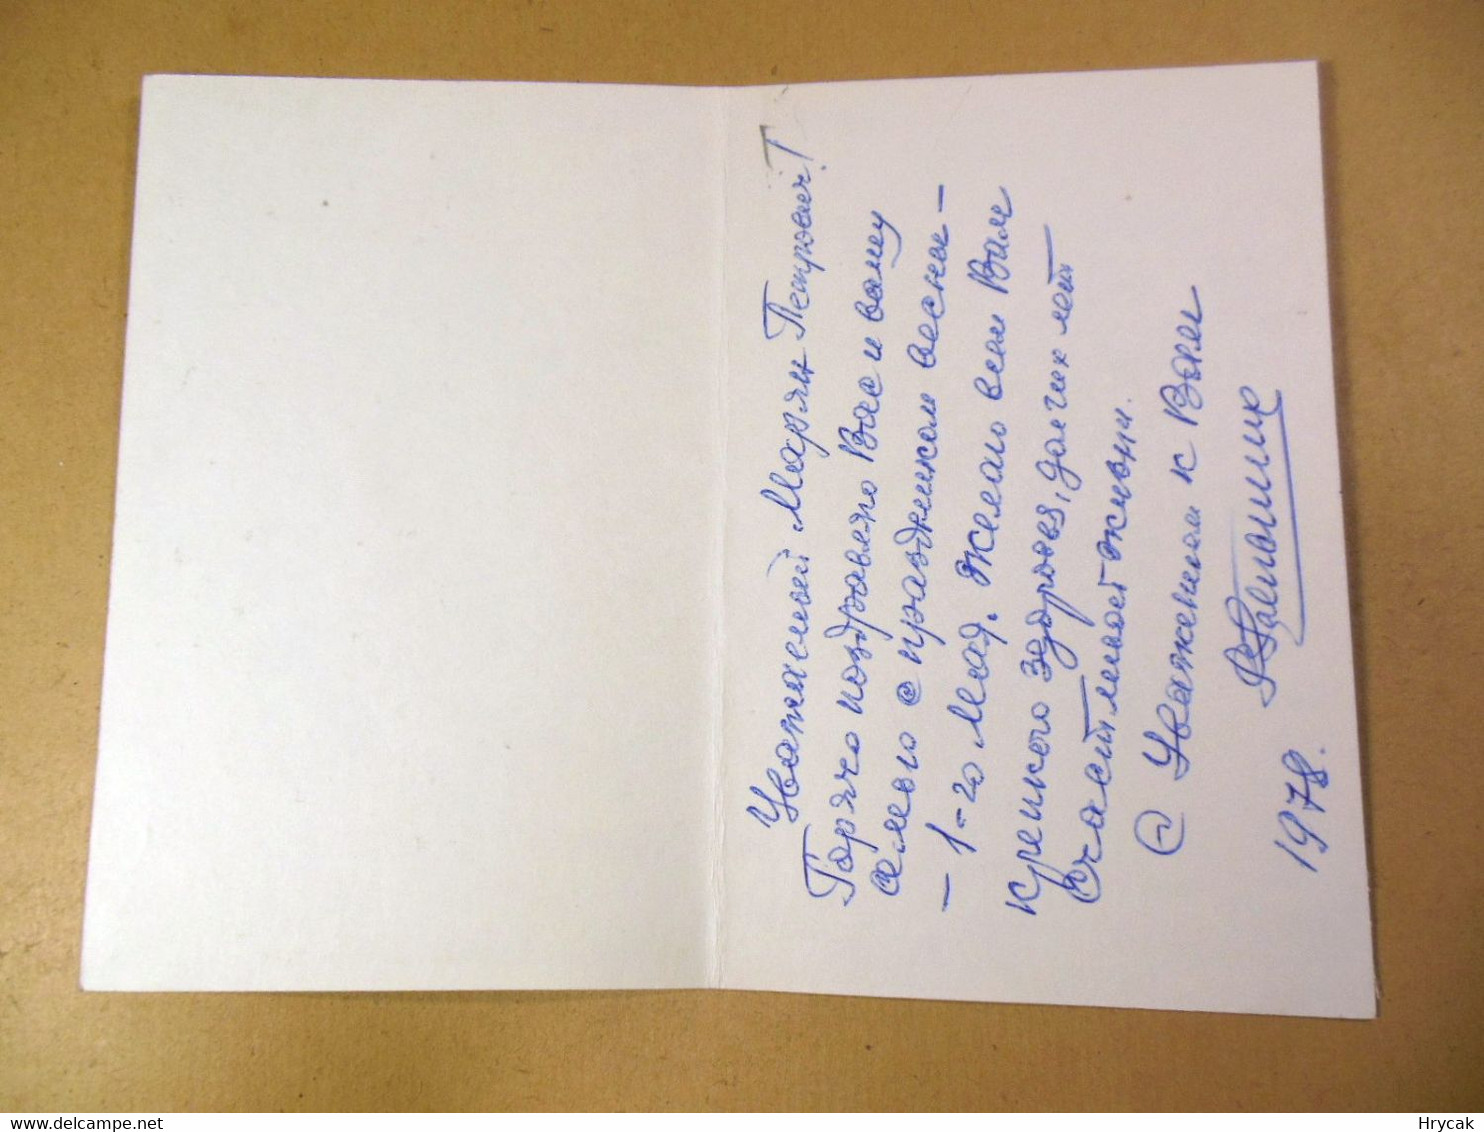 Уважаемый Марян Петрович!
Горячо поздравляю Вас и вашу
семью с праздником весны –
– 1-го Мая. Желаю всем Вам
крепкого здоровья, долгих лет
счастливост жизни.
С Уважением к Вам
1978.
www.delcampe.net
Hrycak